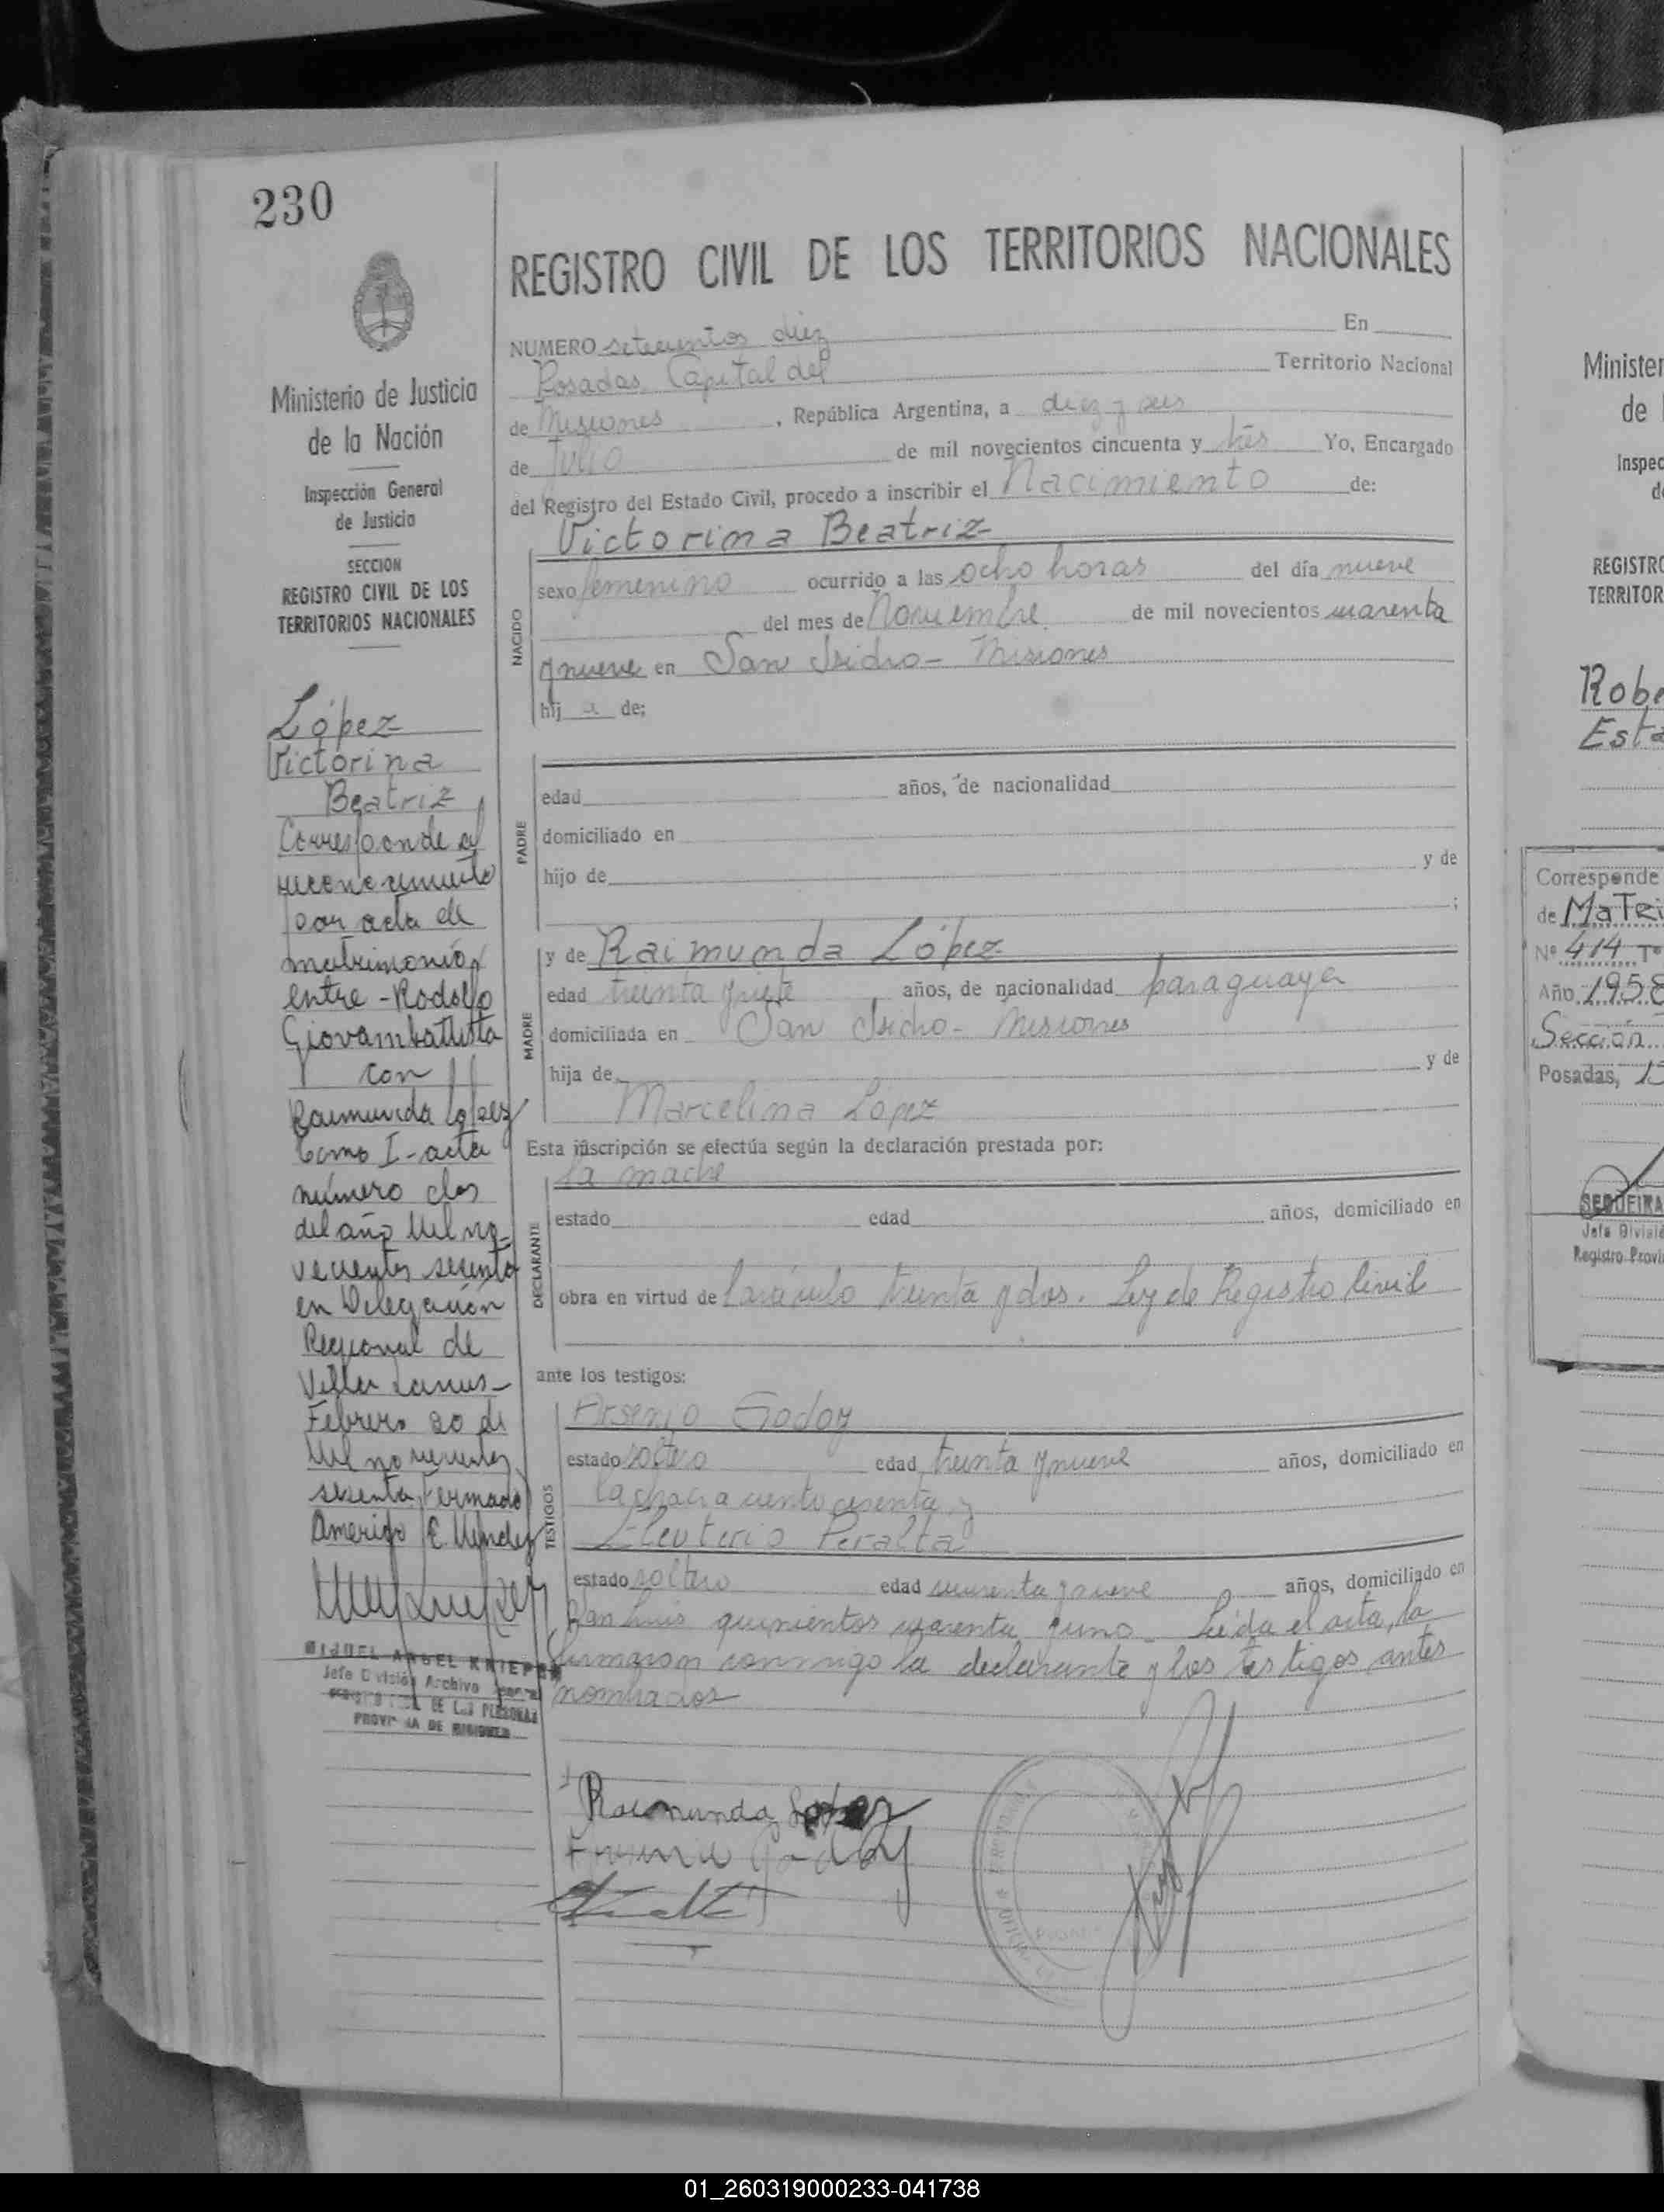 230
REGISTRO CIVIL DE LOS TERRITORIOS NACIONALES
Ministerio de Justicia
de la Nación
Inspección General
de Justicia
SECCION
REGISTRO CIVIL DE LOS
TERRITORIOS NACIONALES
López
Victorina
Beatriz
Corresponde al
reconocimiento
por acta de
matrimonio
entre - Rodolfo
Giovambattista
con
Raimunda López
Tomo I - acta
número dos
del año Mil no-
vecientos sesenta
en Delegación
Regional de
Villa Lanus -
Febrero 20 de
Mil novecientos
sesenta Firmado
Amerigo E. Mendez
MIGUEL ANGEL KNIEPER
Jefe División Archivo
DE LAS PERSONAS
PROVINCIA DE MISIONES
NUMERO setecientos diez En
Posadas Capital del Territorio Nacional
de Misiones, República Argentina, a diez y seis
de Julio de mil novecientos cincuenta y tres Yo, Encargado
del Registro del Estado Civil, procedo a inscribir el Nacimiento de:
NACIDO
Victorina Beatriz
sexo femenino ocurrido a las ocho horas del día nueve
del mes de Noviembre de mil novecientos cuarenta
y nueve en San Isidro - Misiones
hij a de;
PADRE
edad años, de nacionalidad
domiciliado en
hijo de y de
;
MADRE
y de Raimunda López
edad treinta y siete años, de nacionalidad paraguaya
domiciliada en San Isidro - Misiones
hija de y de
Marcelina López
Esta inscripción se efectúa según la declaración prestada por:
DECLARANTE
la madre
estado edad años, domiciliado en
obra en virtud de l'artículo treinta y dos. Ley de Registro Civil
ante los testigos:
TESTIGOS
Arsenio Godoy
estado soltero edad treinta y nueve años, domiciliado en
la chacra ciento sesenta y
Eleuterio Peralta
estado soltero edad cuarenta y nueve años, domiciliado en
San Luis quinientos cuarenta y uno - Leída el acta, la
firmaron conmigo la declarante y los testigos antes
nombrados
Raimunda López
Godoy
Minister
de
Inspec
REGISTRO
TERRITOR
Robe
Esta
Corresponde
de Matri
Nº 414 Tº
Año 1958
Sección
Posadas, 15
SEQUEIRA
Jefe Divisió
Registro Provi
01_260319000233-041738